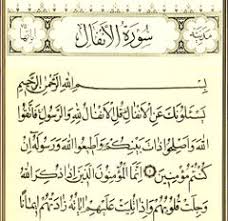 سُورَةُ الْأَنْفَالِ
بِسْمِ اللَّهِ الرَّحْمَٰنِ الرَّحِيمِ
يَسْأَلُونَكَ عَنِ الْأَنْفَالِ قُلِ الْأَنْفَالُ لِلَّهِ وَالرَّسُولِ فَاتَّقُوا
اللَّهَ وَأَصْلِحُوا ذَاتَ بَيْنِكُمْ وَأَطِيعُوا اللَّهَ وَرَسُولَهُ إِنْ
كُنْتُمْ مُؤْمِنِينَ ۝ إِنَّمَا الْمُؤْمِنُونَ الَّذِينَ إِذَا ذُكِرَ اللَّهُ
وَجِلَتْ قُلُوبُهُمْ وَإِذَا تُلِيَتْ عَلَيْهِمْ آيَاتُهُ زَادَتْهُمْ إِيمَانًا